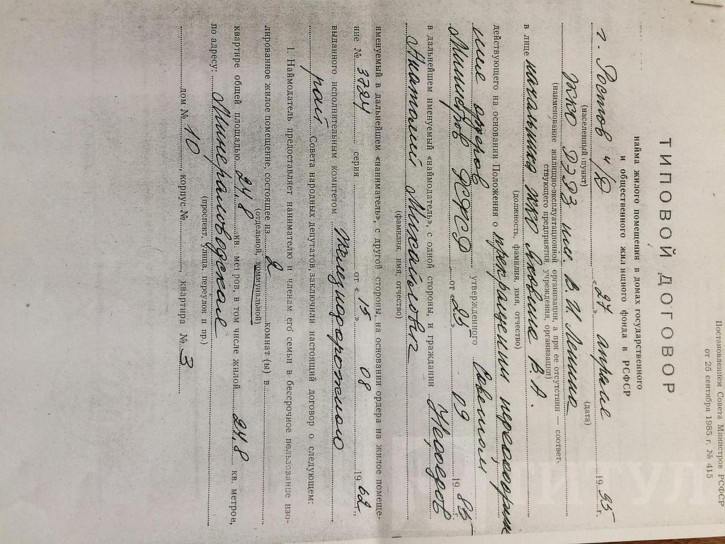 Постановлением Совета Министров РСФСР
от 25 сентября 1985 г. № 415
ТИПОВОЙ ДОГОВОР
найма жилого помещения в домах государственного
и общественного жилищного фонда в РСФСР
г. Ростов н/Д „27 апреля 1995 г.
(населенный пункт) (дата)
ЖКО РЭВЗ им. В. И. Ленина
(наименование жилищно-эксплуатационной организации, а при ее отсутствии — соответ-
ствующего предприятия, учреждения, организации)
в лице начальника ЖКО В. А.
(должность, фамилия, имя, отчество)
действующего на основании Положения о
утвержденного Советом
Министров РСФСР от 25 09 1985
в дальнейшем именуемый «наймодатель», с одной стороны, и гражданин
Анатолий Михайлович
(фамилия, имя, отчество)
именуемый в дальнейшем «наниматель», с другой стороны, на основании ордера на жилое помеще-
ние № 3724 серия от «15» 08 1962 г.,
выданного исполнительным комитетом Железнодорожного
рай Совета народных депутатов, заключили настоящий договор о следующем:
1. Наймодатель предоставляет нанимателю и членам его семьи в бессрочное пользование изо-
лированное жилое помещение, состоящее из 2 комнат (ы) в
(отдельной, коммунальной)
квартире общей площадью 24,8 кв. метров, в том числе жилой 24,8 кв. метров,
по адресу: Минераловодская
(проспект, улица, переулок и пр.)
дом № 10, корпус № , квартира № 3